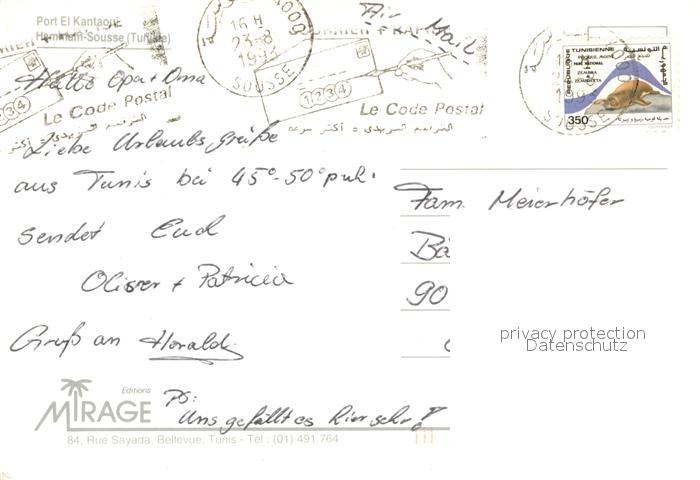 Port El Kantaoui
Hammam-Sousse (Tunisie)
Air Mail
16 H
23-8
1993
SOUSSE
4000
1234
Le Code Postal
1234
Le Code Postal
الترقيم البريدي = أكثر سرعة
REPUBLIQUE TUNISIENNE
PARC NATIONAL
ZEMBRA
ZEMBRETTA
350
Hallo Opa + Oma
Liebe Urlaubsgrüße
aus Tunis bei 45°-50° puh.
sendet Euch
Oliver + Patricia
Gruß an Harald
PS:
Uns gefällt es hier sehr!
Fam. Meierhöfer
Bä
90
privacy protection
Datenschutz
Editions
MIRAGE
84, Rue Sayada, Bellevue, Tunis - Tel : (01) 491 764